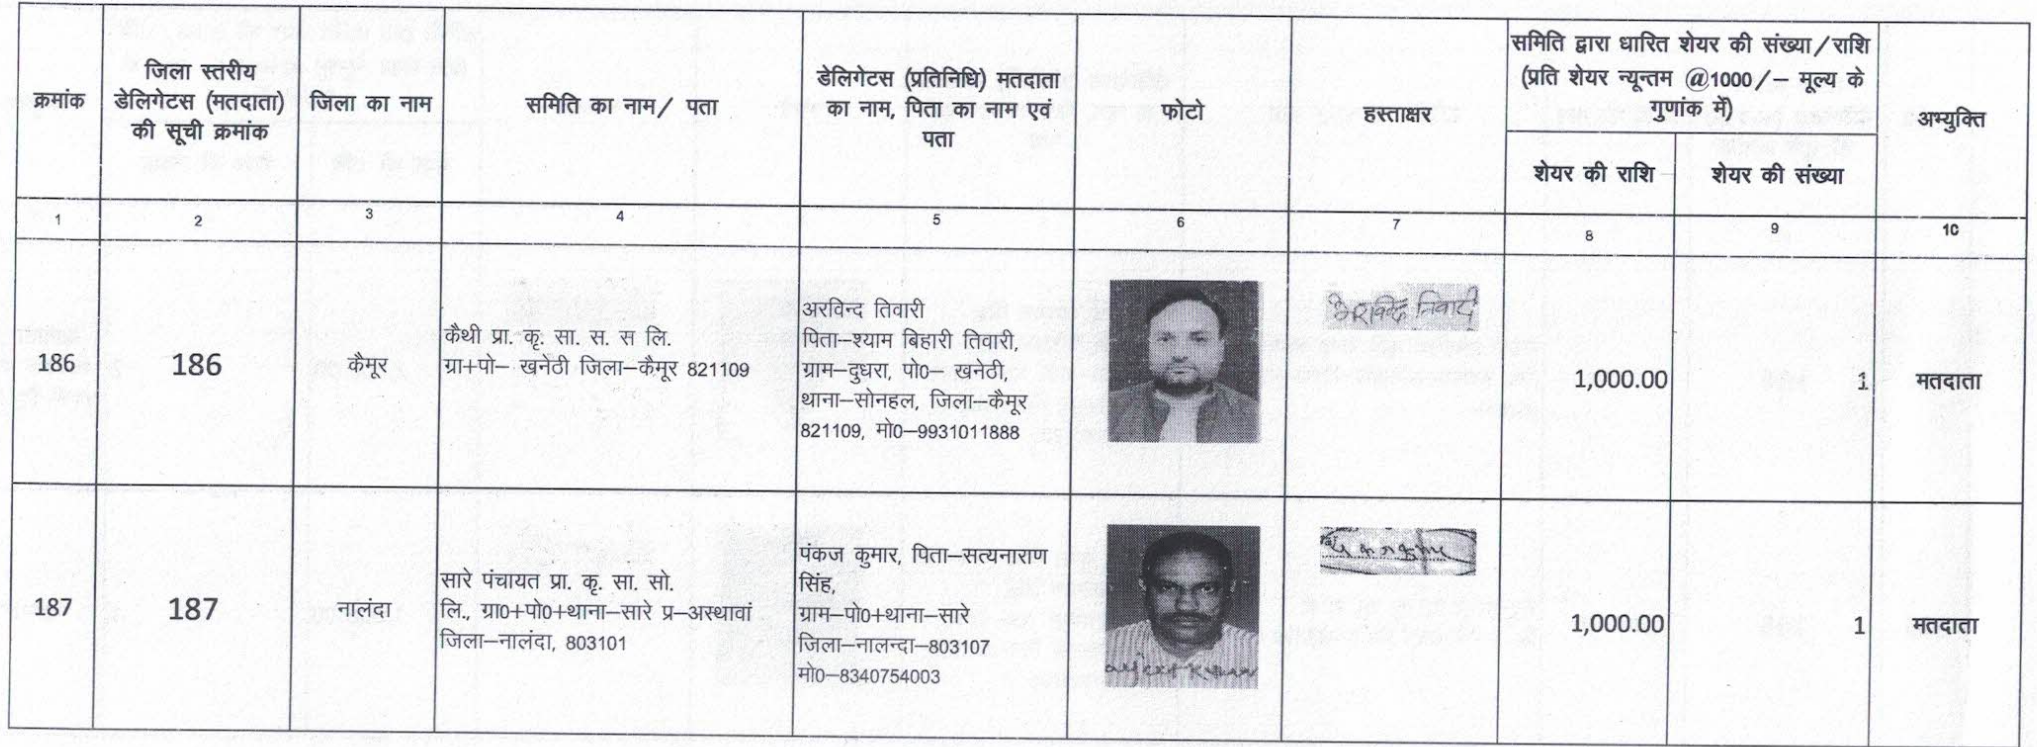 क्रमांक
जिला स्तरीय
डेलिगेटस (मतदाता)
की सूची क्रमांक
जिला का नाम
समिति का नाम/ पता
डेलिगेटस (प्रतिनिधि) मतदाता
का नाम, पिता का नाम एवं
पता
फोटो
हस्ताक्षर
समिति द्वारा धारित शेयर की संख्या/राशि
(प्रति शेयर न्यूनतम @1000/– मूल्य के
गुणांक में)
शेयर की राशि
शेयर की संख्या
अभ्युक्ति
1
2
3
4
5
6
7
8
9
10
186
186
कैमूर
कैथी प्रा. कृ. सा. स. स लि.
ग्रा+पो– खनेठी जिला–कैमूर 821109
अरविन्द तिवारी
पिता–श्याम बिहारी तिवारी,
ग्राम–दुधरा, पो0– खनेठी,
थाना–सोनहल, जिला–कैमूर
821109, मो0–9931011888
अरविन्द तिवारी
1,000.00
1
मतदाता
187
187
नालंदा
सारे पंचायत प्रा. कृ. सा. सो.
लि., ग्रा0+पो0+थाना–सारे प्र–अस्थावां
जिला–नालंदा, 803101
पंकज कुमार, पिता–सत्यनाराण
सिंह,
ग्राम–पो0+थाना–सारे
जिला–नालन्दा–803107
मो0–8340754003
1,000.00
1
मतदाता